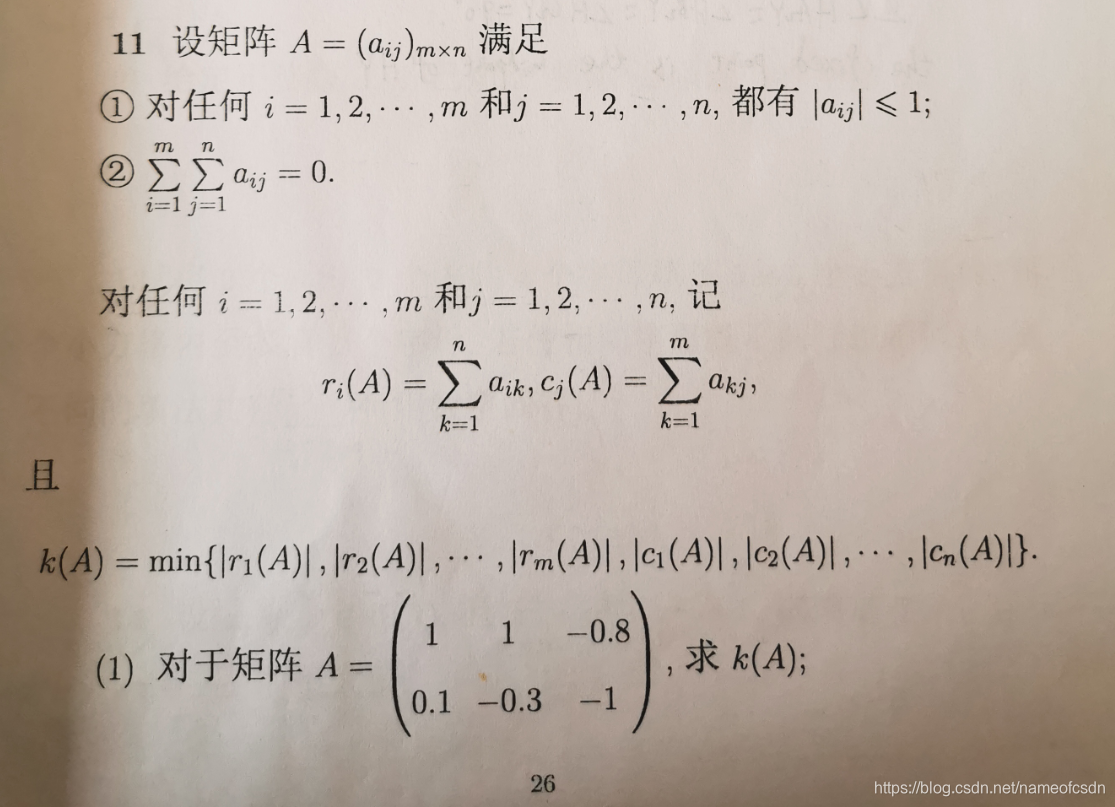 11 设矩阵 A = (aᵢⱼ)ₘ×ₙ 满足
① 对任何 i = 1, 2, ⋯ , m 和j = 1, 2, ⋯ , n, 都有 |aᵢⱼ| ⩽ 1;
② ∑_{i=1}^{m} ∑_{j=1}^{n} aᵢⱼ = 0.
对任何 i = 1, 2, ⋯ , m 和j = 1, 2, ⋯ , n, 记
rᵢ(A) = ∑_{k=1}^{n} aᵢₖ, cⱼ(A) = ∑_{k=1}^{m} aₖⱼ,
且
k(A) = min{|r₁(A)| , |r₂(A)| , ⋯ , |rₘ(A)| , |c₁(A)| , |c₂(A)| , ⋯ , |cₙ(A)|}.
(1) 对于矩阵 A = ( 1 1 −0.8 ; 0.1 −0.3 −1 ) , 求 k(A);
26
https://blog.csdn.net/nameofcsdn